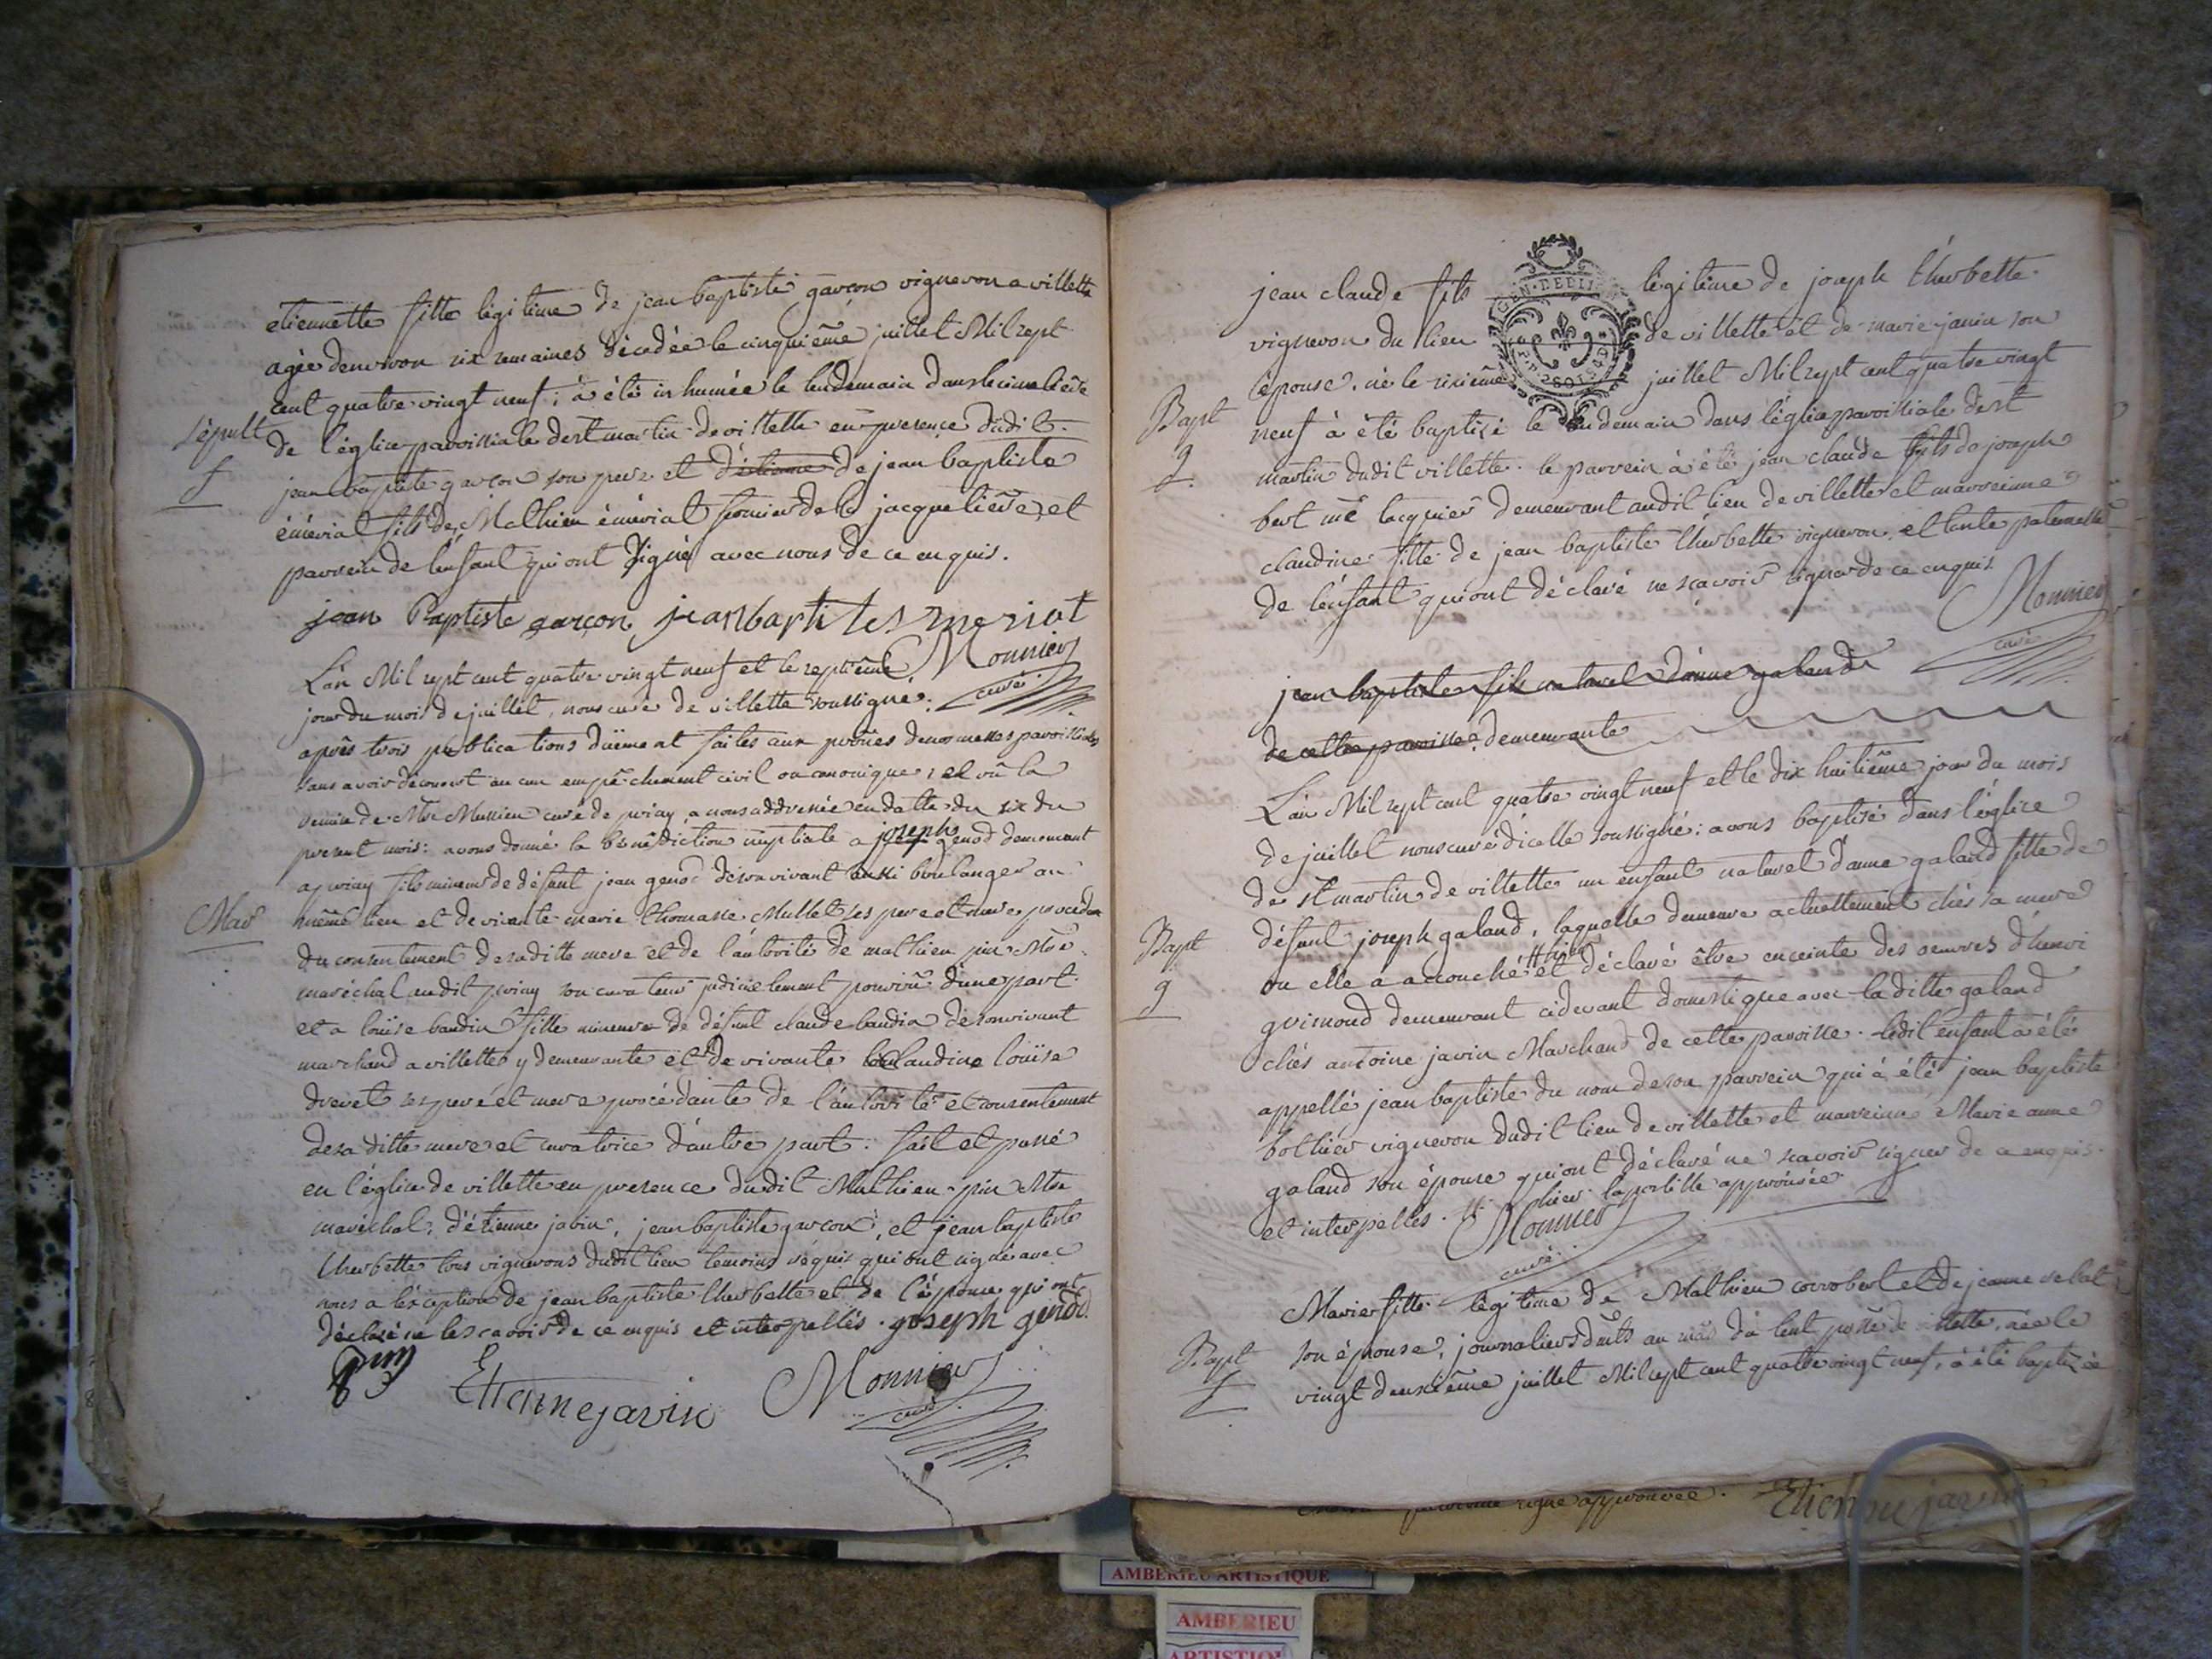 etiennette fille légitime de jean baptiste garçon vigneron a villette
agée denviron six semaines décedée le cinquiême juillet Mil sept
cent quatre vingt neuf; à été inhumée le lendemain dans le cimetiêre
Sépult
f
de l'église paroissiale de st martin de villette en presence dudit
jean baptiste garçon son pere et d'etienne de jean baptiste
émériat fils de Mathieu émériat de la jacquetiêre, et
parrein de l'enfant qui ont signé avec nous de ce enquis.
jean Baptiste garçon jeanbaptiste smeriat
Monnier
curé
L'an Mil sept cent quatre vingt neuf et le septiême
jour du mois de juillet, nous curé de villette soussigné;
après trois publications düement faites aux prônes de nos messes paroissiales
sans avoir découvert aucun empêchement civil ou canonique; et vû la
remise de Mre Mussieu curé de priay, a nous addressée en datte du six du
present mois: avons donné la bénédiction nuptiale a joseph genod demeurant
a priay fils mineur de défunt jean genod de son vivant aussi boulanger au
Mar
même lieu et de vivante marie thomasse Mullet ses pere et mere, procédant
du consentement de sa ditte mere et de l'autorité de mathieu pin Mtre
maréchal audit priay son curateur judicielement pourvû d'une part.
et a loüise baudin fille mineure de défunt claude baudin de son vivant
marchand a villette y demeurante et de vivante claudine loüise
drevet ses pere et mere procédante de l'autorité et consentement
de sa ditte mere et curatrice d'autre part: fait et passé
en l'église de villette en presence dudit Mathieu pin Mtre
maréchal, d'étienne javin, jean baptiste garçon, et jean baptiste
therbette tous vignerons dudit lieu temoins réquis qui ont signé avec
nous a l'éxception de jean baptiste therbette et de l'épouse qui ont
déclaré ne le scavoir de ce enquis et interpellés. joseph genod
pin Etienne javin Monnier
curé
jean claude fils légitime de joseph therbette
GEN. DE DIJON
vigneron du lieu de villette et de marie janin son
épouse, né le sixiême juillet Mil sept cent quatre vingt
Bapt
g
neuf à été baptizé le lendemain dans l'église paroissiale de st
martin dudit villette. le parrein à été jean claude fils de joseph
bert demeurant audit lieu de villette et marreinne
claudine fille de jean baptiste therbette vigneron, et tante paternelle
de l'enfant qui ont déclaré ne scavoir signer de ce enquis
Monnier
curé
jean baptiste fils naturel d'anne galand
de cette paroisse demeurante
L'an Mil sept cent quatre vingt neuf et le dix huitiême jour du mois
de juillet nous curé d'icelle soussigné; avons baptizé dans l'église
de st martin de villette un enfant naturel d'anne galand fille de
Bapt
g
défunt joseph galand, laquelle demeure actuellement chés sa mere
ou elle a accouché # hier et déclaré être enceinte des oeuvres d'henri
grimoud demeurant cidevant domestique avec la ditte galand
chés antoine javin Marchand de cette paroisse. ledit enfant à été
appellé jean baptiste du nom de son parrein qui à été jean baptiste
bothier vigneron dudit lieu de villette et marreinne Marie anne
galand son épouse qui ont déclaré ne scavoir signer de ce enquis
et interpellés. # hier lapostille approuvée
Monnier
curé
Marie fille légitime de Mathieu corrobert et de jeanne velat
Bapt
f
son épouse, journaliers villette, née le
vingt deuxiême juillet Mil sept cent quatre vingt neuf, à été baptizée
signe approuvée. Etienne javin
AMBERIEU ARTISTIQUE
AMBERIEU
ARTISTIQUE